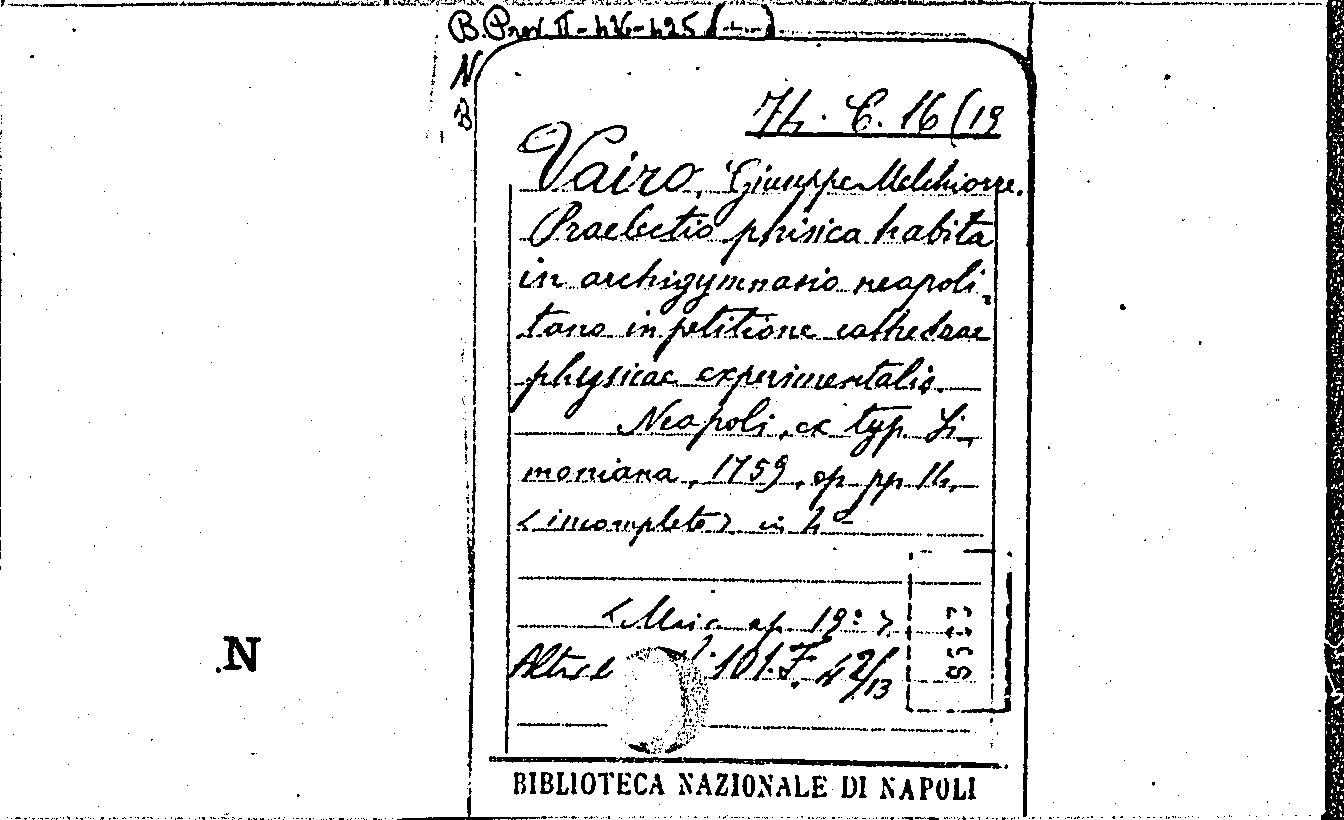 B. Prov. II-
N
B
74. C. 16 (19
Vairo, Giuseppe Melchiorre.
Praelectio phisica habita
in archigymnasio neapoli-
tano in petitione cathedrae
physicae experimentalis.
Neapoli, ex typ. Si-
moniana, 1759, op. pp. 14.
<incompleto> in 4º
<Misc. op. 19º>
Altr es 101. F. 42/13
N
BIBLIOTECA NAZIONALE DI NAPOLI